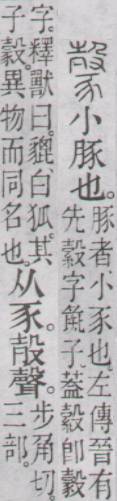 豰小豚也。
豚者、小豕也。左傳晉有
先縠字彘子。葢縠卽豰
字。釋獸曰。貔、白狐。其
子豰。異物而同名也。
从豕。㱿聲。
步角切。
三部。